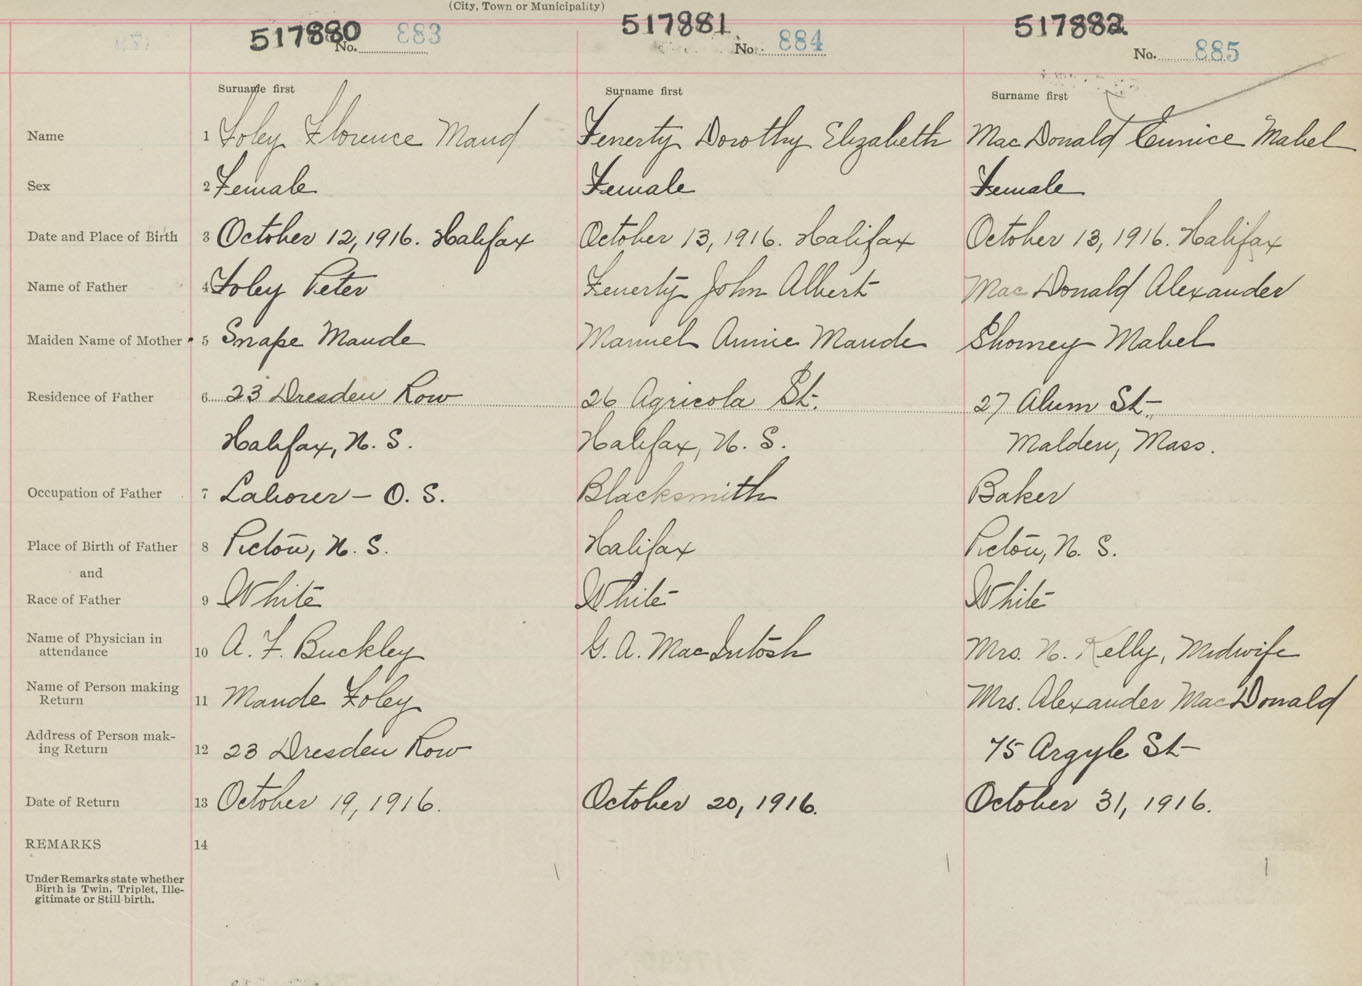 (City, Town or Municipality)
517880 No. 883 517881 No. 884 517882 No. 885
Surname first Surname first Surname first
Name 1 Foley Florence Maud Fenerty Dorothy Elizabeth MacDonald Eunice Mabel
Sex 2 Female Female Female
Date and Place of Birth 3 October 12, 1916. Halifax October 13, 1916. Halifax October 13, 1916. Halifax
Name of Father 4 Foley Peter Fenerty John Albert MacDonald Alexander
Maiden Name of Mother 5 Snape Maude Manuel Annie Maude Mabel
Residence of Father 6 23 Dresden Row 26 Agricola St. 27 Alum St
Halifax, N. S. Halifax, N. S. Malden, Mass.
Occupation of Father 7 Laborer - O. S. Blacksmith Baker
Place of Birth of Father 8 Pictou, N. S. Halifax Pictou, N. S.
and
Race of Father 9 White White White
Name of Physician in
attendance 10 A. F. Buckley G. A. MacIntosh Mrs. N. Kelly, Midwife
Name of Person making
Return 11 Maude Foley Mrs. Alexander MacDonald
Address of Person mak-
ing Return 12 23 Dresden Row 75 Argyle St
Date of Return 13 October 19, 1916. October 20, 1916. October 31, 1916.
REMARKS 14
Under Remarks state whether
Birth is Twin, Triplet, Ille-
gitimate or Still birth.